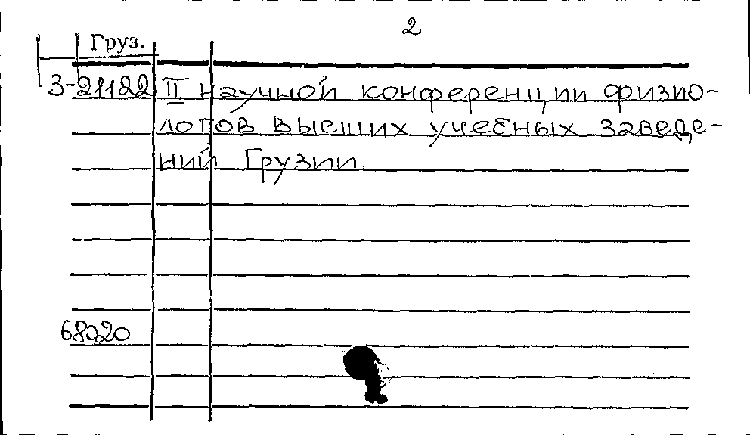 2
Груз.
3-21122 II научной конференции физио-
логов высших учебных заведе-
ний Грузии
68020